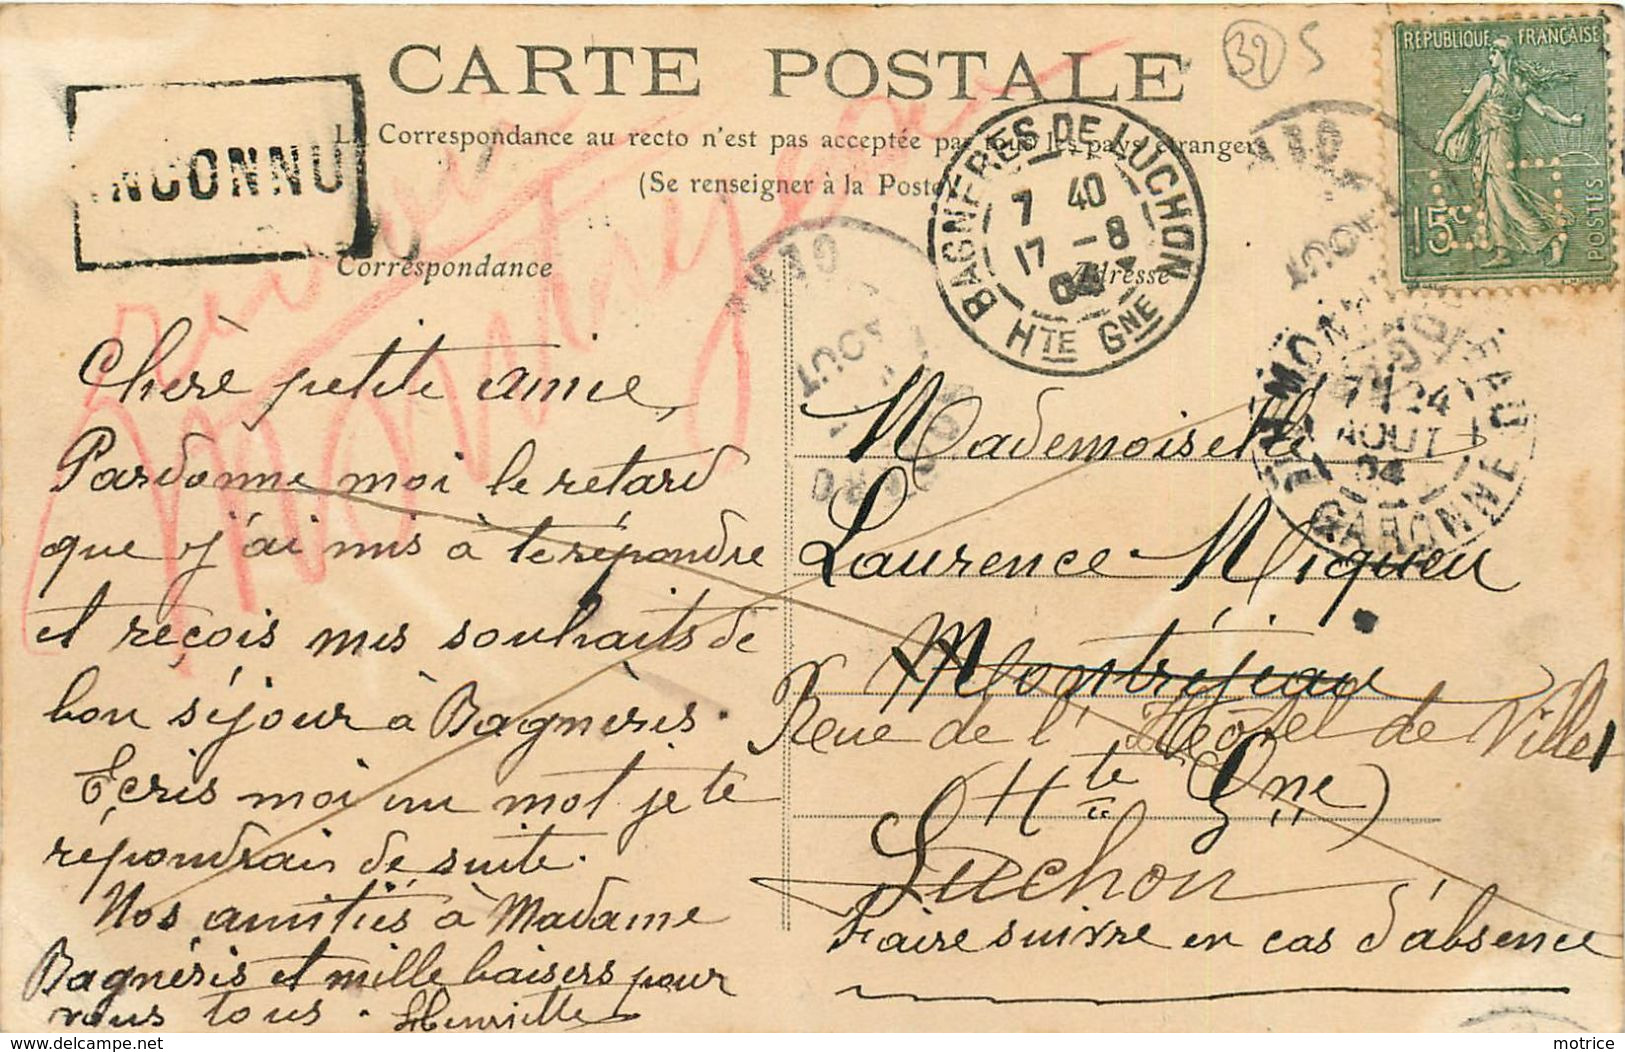 CARTE POSTALE
32 5
RÉPUBLIQUE FRANÇAISE
15c
POSTES
La Correspondance au recto n'est pas acceptée par tous les pays étrangers
(Se renseigner à la Poste)
INCONNU
BAGNÈRES DE LUCHON
7 40
17 -8
04
HTE GNE
Correspondance
Adresse
AOUT
AOUT
7 24
AOUT
04
GARONNE
Chère petite amie,
Pardonne moi le retard
que j'ai mis à te répondre
et reçois mes souhaits de
bon séjour à Bagnères.
Ecris moi un mot je te
répondrais de suite.
Nos amitiés à Madame
Bagnéris et mille baisers pour
vous tous. Henriette
Mademoiselle
Laurence Miqueu
Montréjeau
Rue de l'Hôtel de Ville
Hte Gne
Luchon
Faire suivre en cas d'absence
www.delcampe.net
motrice